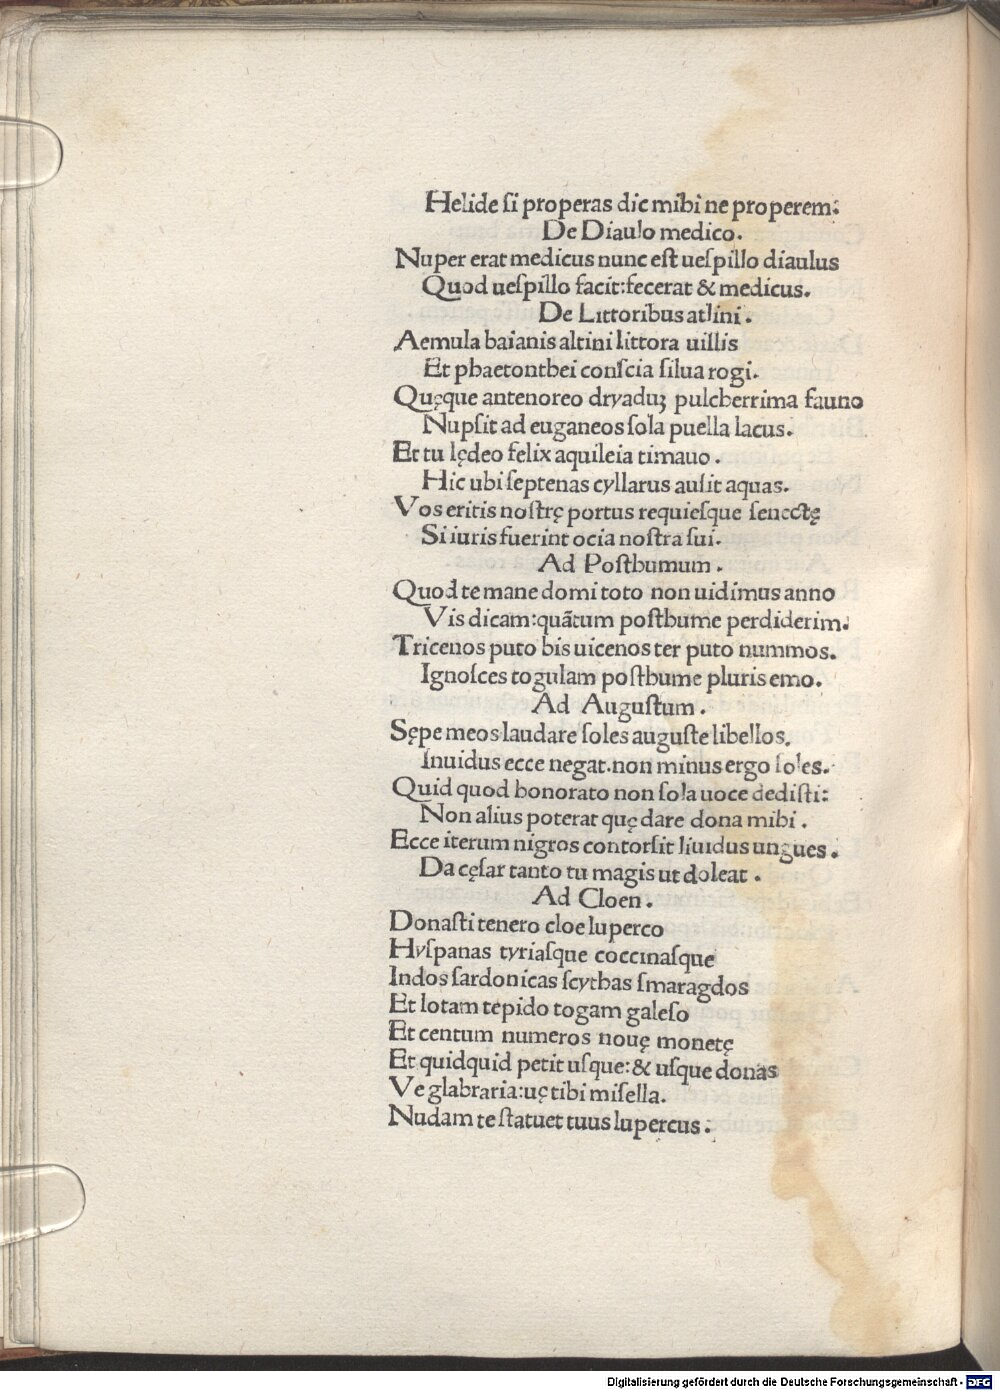 Helide ſi properas dic mihi ne properem:
De Diaulo medico.
Nuper erat medicus nunc eſt ueſpillo diaulus
Quod ueſpillo facit:fecerat & medicus.
De Littoribus atlini.
Aemula baianis altini littora uillis
Et phaetonthei conſcia ſilua rogi.
Quęque antenoreo dryaduꝫ pulcherrima fauno
Nupſit ad euganeos ſola puella lacus.
Et tu lędeo felix aquileia timauo.
Hic ubi ſeptenas cyllarus auſit aquas.
Vos eritis noſtrę portus requieſque ſenectę
Si iuris fuerint ocia noſtra ſui.
Ad Poſthumum.
Quod te mane domi toto non uidimus anno
Vis dicam:quãtum poſthume perdiderim.
Tricenos puto bis uicenos ter puto nummos.
Ignoſces togulam poſthume pluris emo.
Ad Auguſtum.
Sępe meos laudare ſoles auguſte libellos.
Inuidus ecce negat.non minus ergo ſoles.
Quid quod honorato non ſola uoce dediſti:
Non alius poterat quę dare dona mihi.
Ecce iterum nigros contorſit liuidus ungues.
Da cęſar tanto tu magis ut doleat.
Ad Cloen.
Donaſti tenero cloe luperco
Hyſpanas tyriaſque coccinaſque
Indos ſardonicas ſcythas ſmaragdos
Et lotam tepido togam galeſo
Et centum numeros nouę monetę
Et quidquid petit uſque:& uſque donas
Ve glabraria:uę tibi miſella.
Nudam te ſtatuet tuus lupercus.
Digitalisierung gefördert durch die Deutsche Forschungsgemeinschaft - DFG